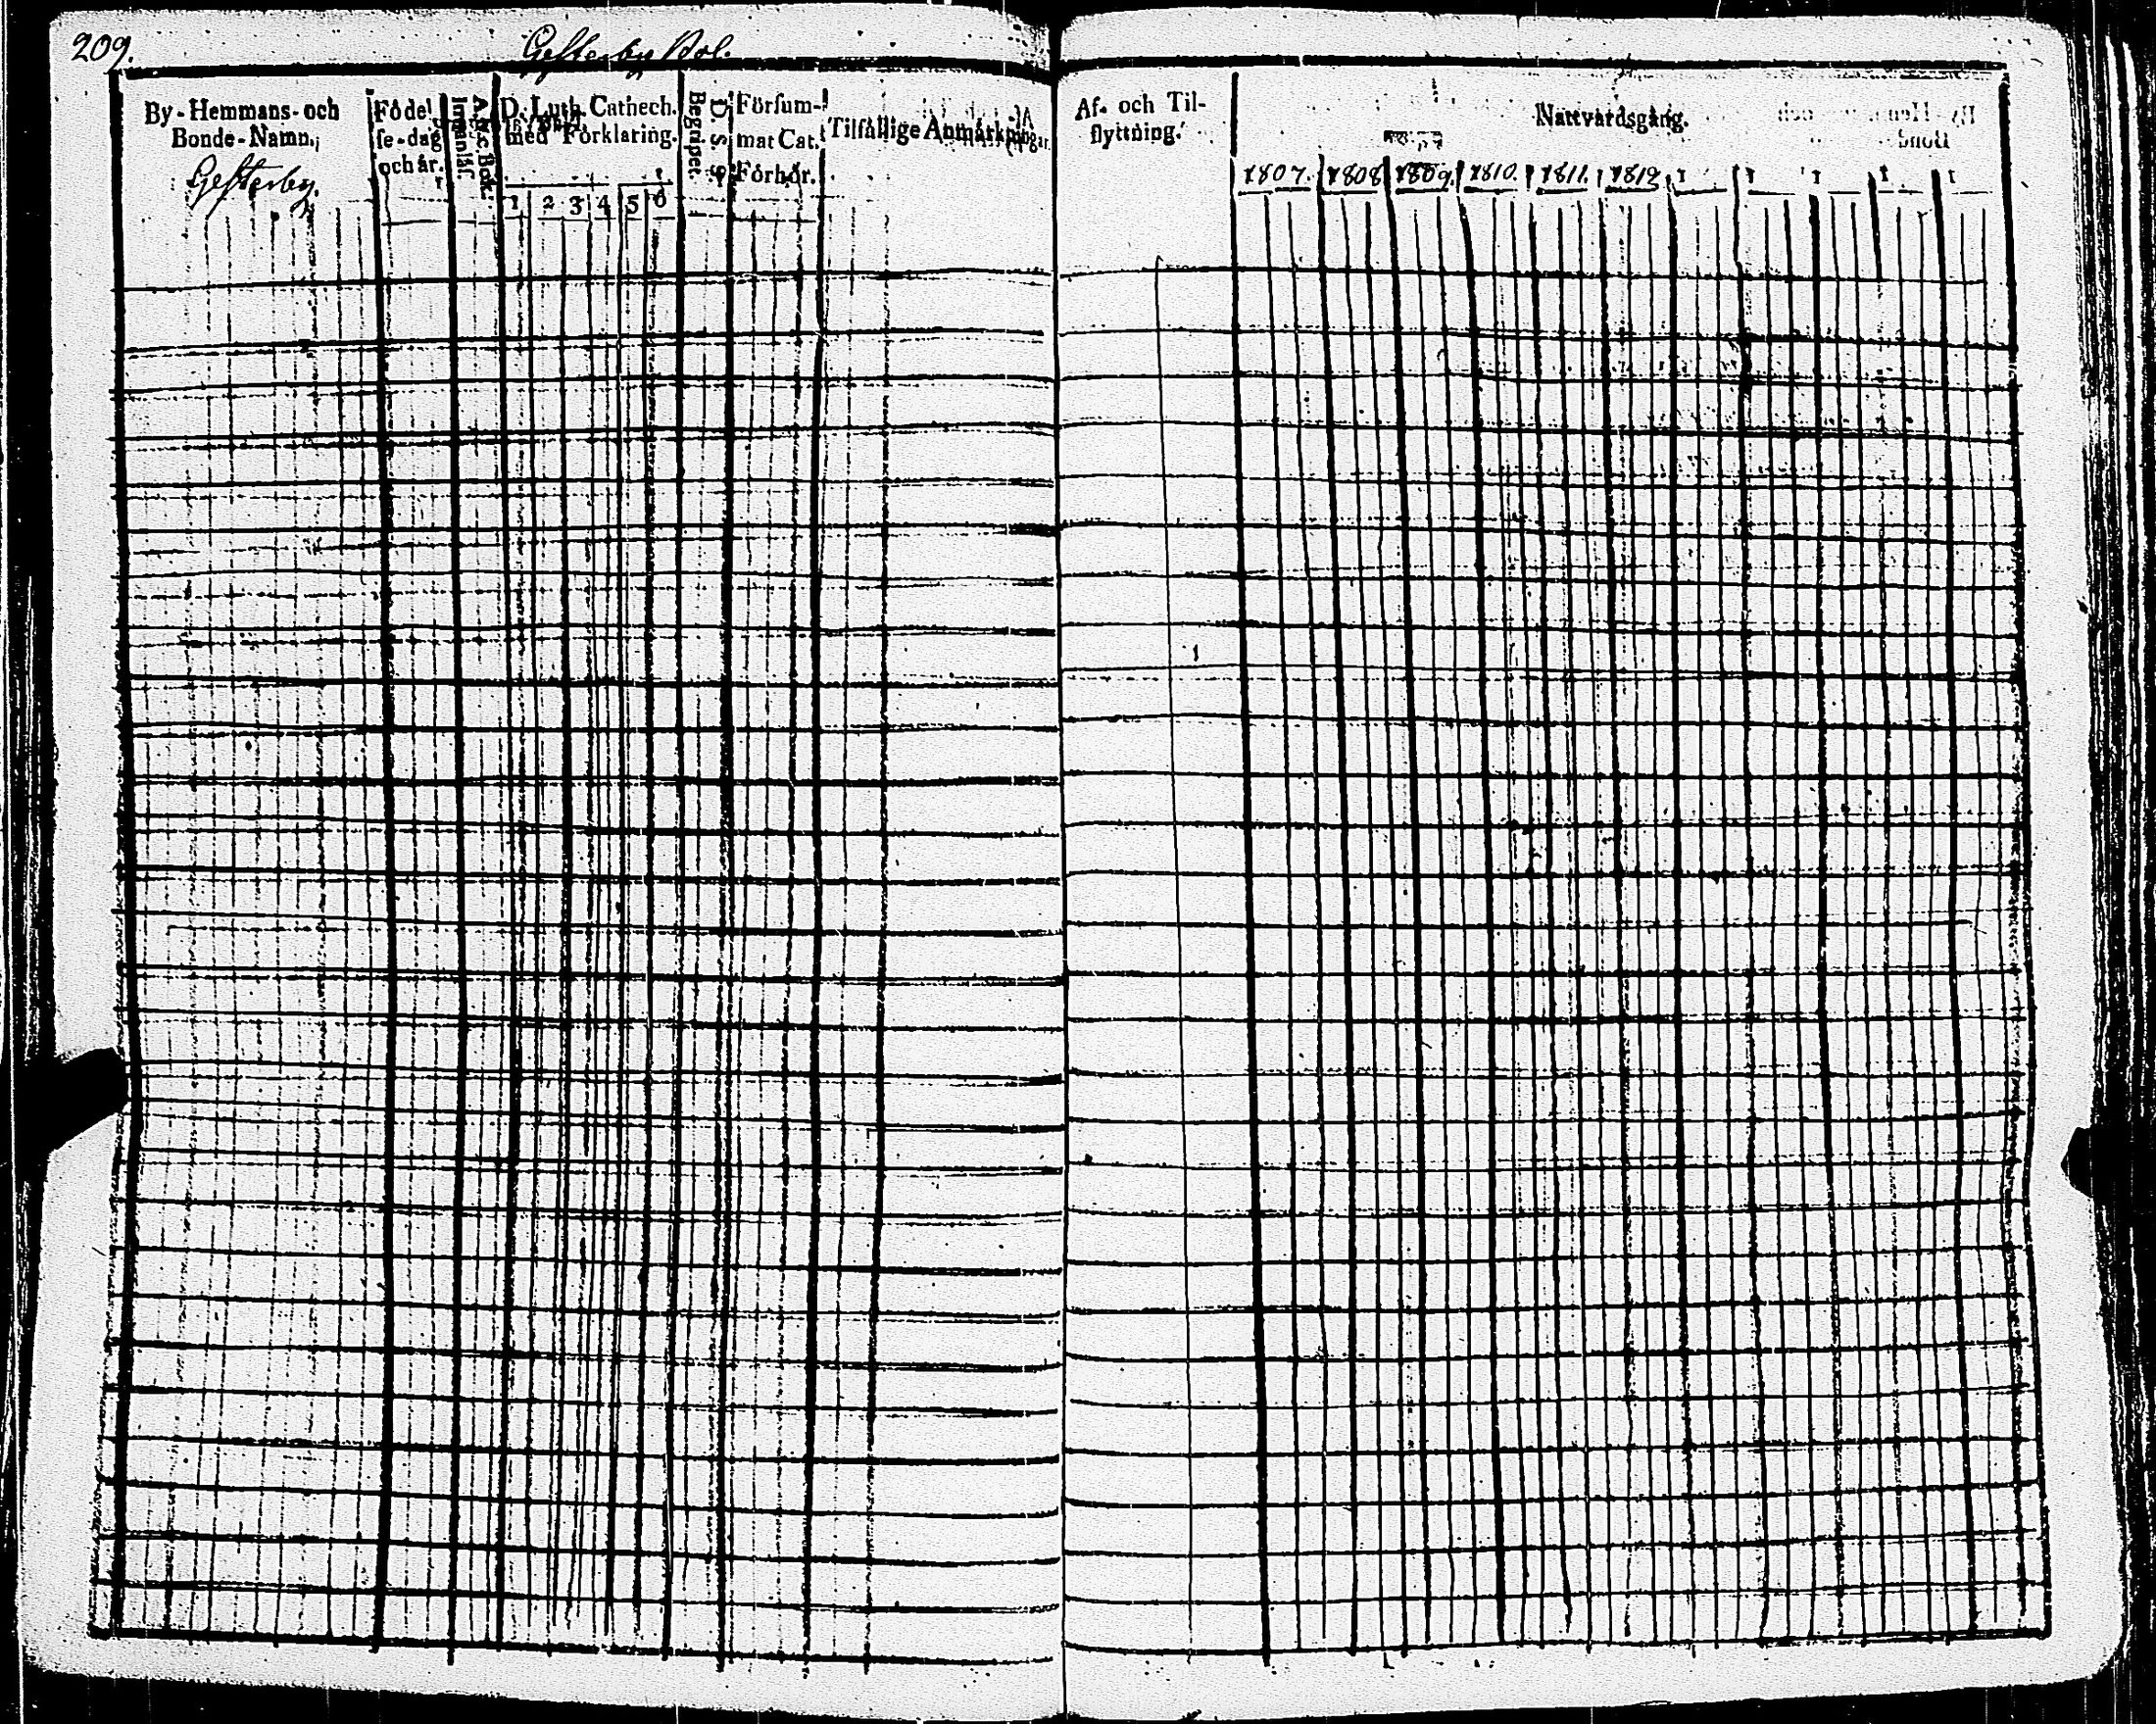 209.
Gesterby Bol.
By-Hemmans- och
Bonde-Namn.
Gesterby.
Födel
se-dag
och år.
A. b. c. Bok.
Innanläs.
D. Luth. Cathech.
med Förklaring.
1 2 3 4 5 6
D. S. S.
Begripet.
Försum-
mat Cat.
Förhör.
Tilfällige Anmärkningar.
Af- och Til-
flyttning.
Nattvardsgång.
1807. 1808 1809. 1810. 1811. 1812. 1 1 1 1 1